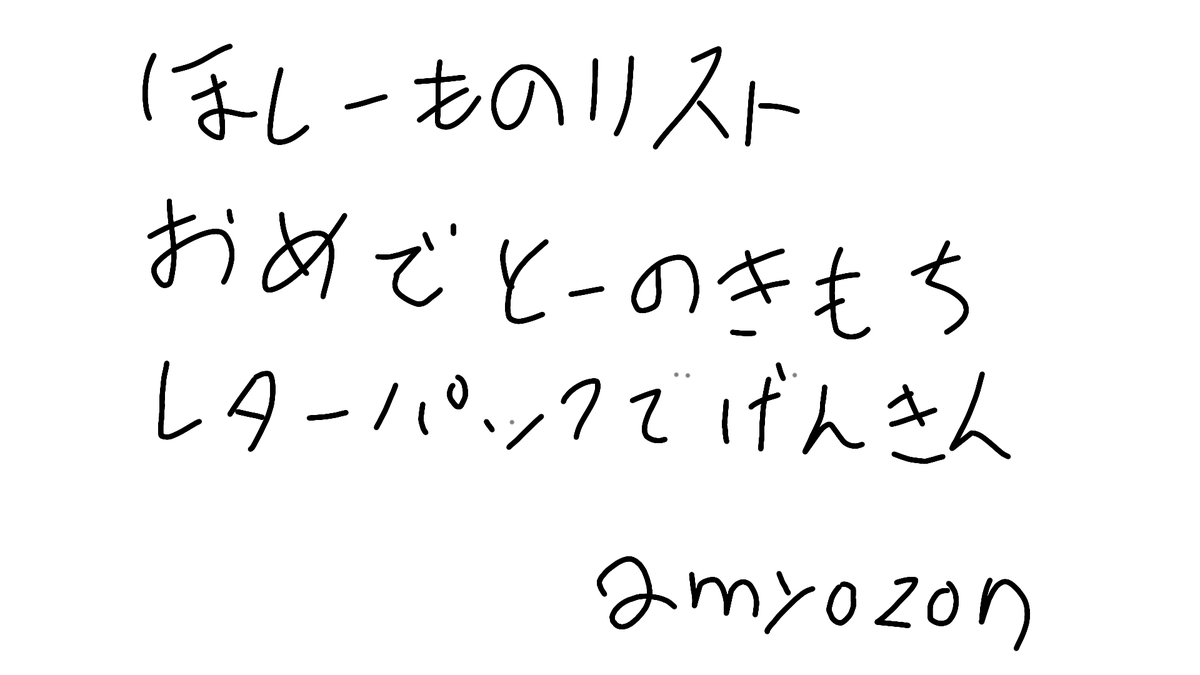 ほしーものリスト
おめでとーのきもち
レターパックでげんきん
amyozon